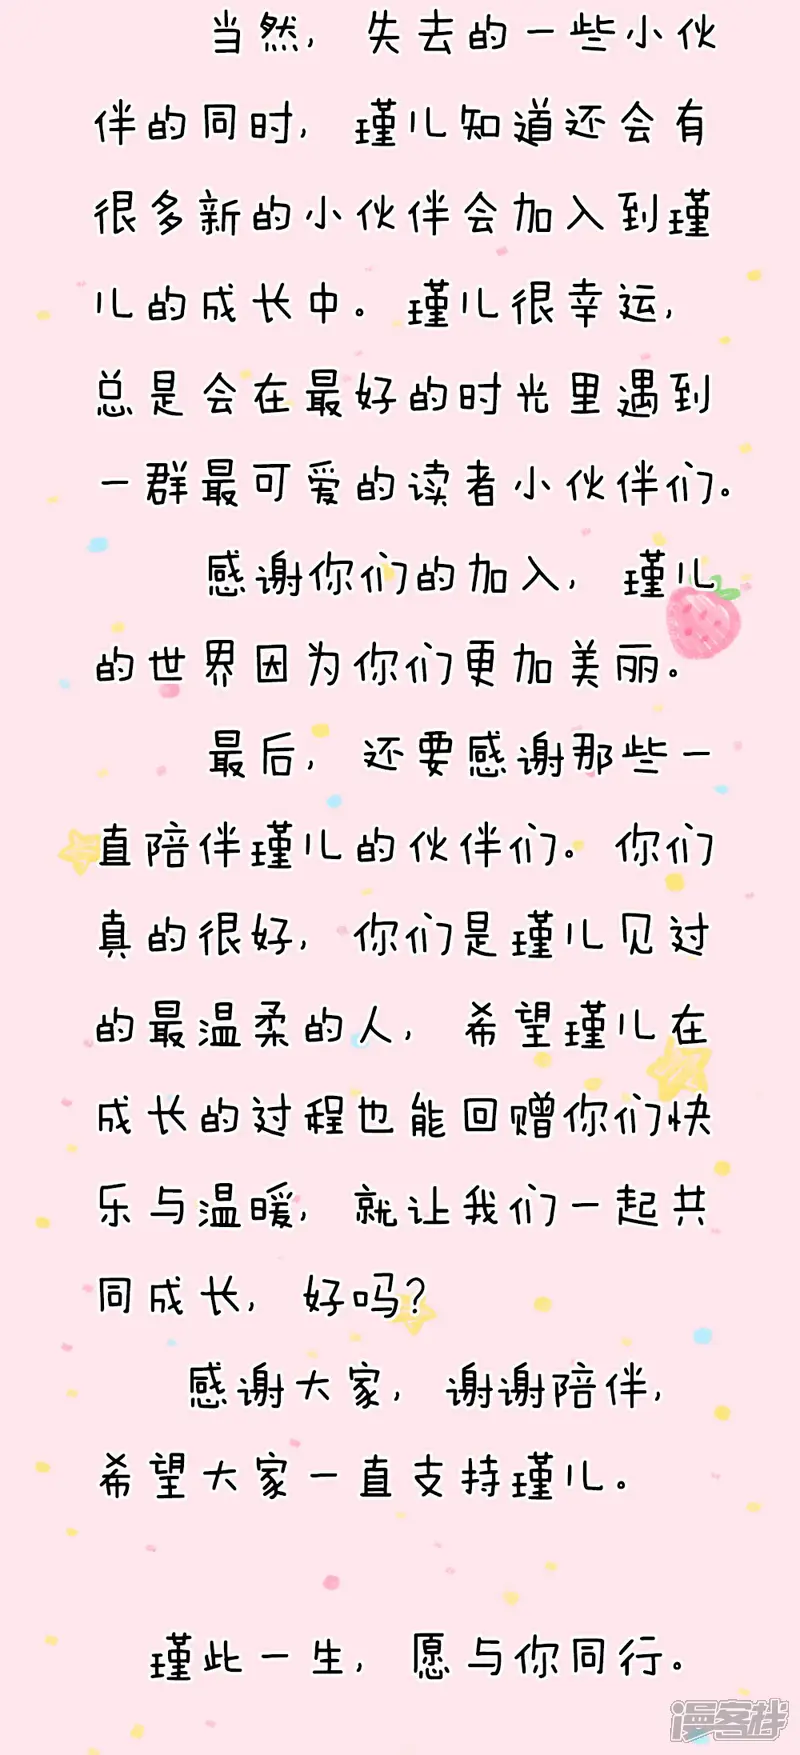 当然，失去的一些小伙
伴的同时，瑾儿知道还会有
很多新的小伙伴会加入到瑾
儿的成长中。瑾儿很幸运，
总是会在最好的时光里遇到
一群最可爱的读者小伙伴们。
感谢你们的加入，瑾儿
的世界因为你们更加美丽。
最后，还要感谢那些一
直陪伴瑾儿的伙伴们。你们
真的很好，你们是瑾儿见过
的最温柔的人，希望瑾儿在
成长的过程也能回赠你们快
乐与温暖，就让我们一起共
同成长，好吗？
感谢大家，谢谢陪伴，
希望大家一直支持瑾儿。
瑾此一生，愿与你同行。
漫客栈